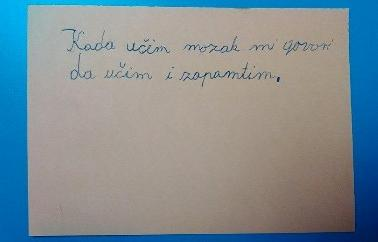 Kada učim mozak mi govori
da učim i zapamtim.